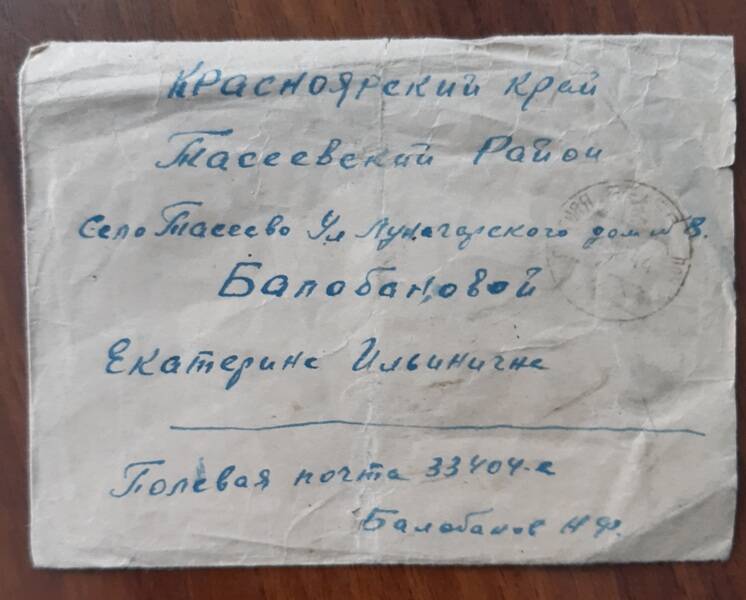 Красноярский край
Тасеевский Район
Село Тасеево Ул Луначарского дом №
Балобановой
Екатерине Ильиничне
Полевая почта 33404-е
Балобанов Н Ф.